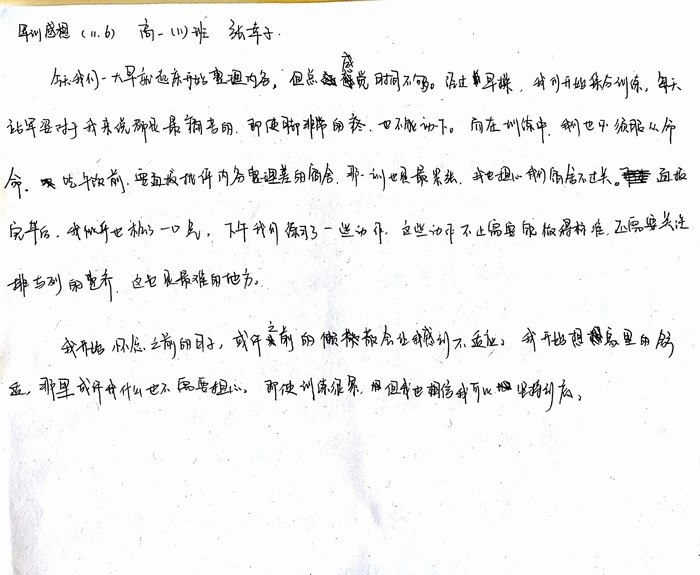 军训感想 (11.6) 高一(11)班 张
今天我们一大早就起床开始整理内务,但总感觉时间不够。经过早操,我们开始集合训练,每天
站军姿对于我来说都是最痛苦的,即使脚非常的疼,也不能动下。而在训练中,我们也必须服从命
令,吃午饭前,要面被批评内务整理差的宿舍,那一训也是最紧张,我也担心我们宿舍不过关。面
完毕后,我似乎也松了一口气,下午我们练习了一些动作,这些动作不止需要能做得标准,还需要关注
排与列的整齐,这也是最难的地方。
我开始怀念之前的日子,或许之前的懒散都会让我感到不适应,我开始想家里的舒
适,那里或许我什么也不需要担心。即使训练很累,但我也相信我可以坚持到底。